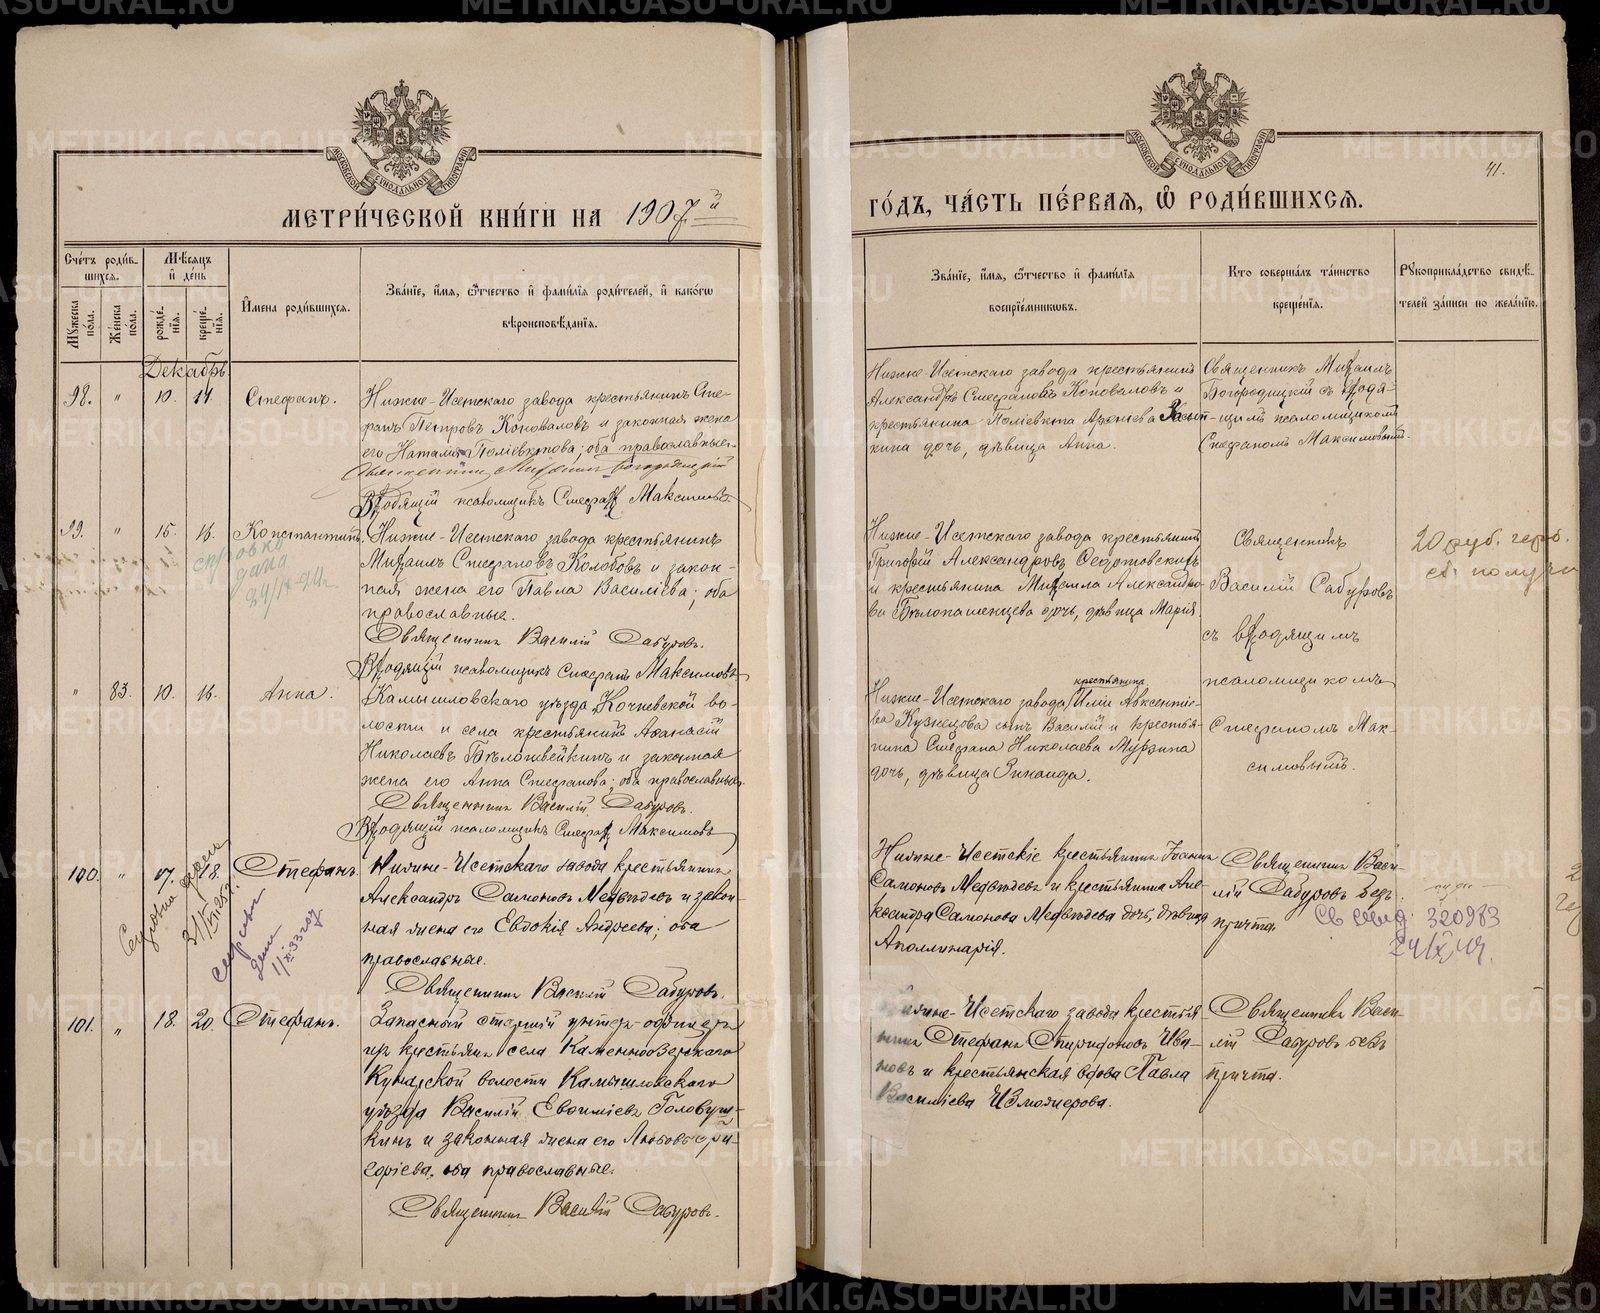 МЕТРИ́ЧЕСКОЙ КНИ́ГИ НА 1907й
Сче́тъ роди́в-
шихся.
Мѣ́сяцъ
и҆ де́нь
Му́жеска по́ла.
Же́нска по́ла.
рожде́-
нїя.
креще́-
нїя.
И҆́мена роди́вшихся.
Зва́нїе, и҆́мя, ѻ҆́тчество и҆ фами́лїя роди́телей, и҆ како́гѡ
вѣроисповѣ́данїя.
Декабрь
98. " 10. 14. Стефанъ.
Нижне-Исетскаго завода крестьянинъ Сте-
фанъ Петровъ Коноваловъ и законная жена
его Наталія Поліевктова; оба православные.
Священникъ Михаилъ Богородицкій
Входящій псаломщикъ Стефанъ Максимовъ
99. " 15. 16. Константинъ.
справка
дана
Нижне-Исетскаго завода крестьянинъ
Михаилъ Стефановъ Колобовъ и закон-
ная жена его Павла Василіева; оба
православные.
Священникъ Василій Сабуровъ.
Входящій псаломщикъ Стефанъ Максимовъ
" 83. 10. 16. Анна.
Камышловскаго уѣзда, Кочневской во-
лости и села крестьянинъ Аѳанасій
Николаевъ Бѣлошвейкинъ и законная
жена его Анна Стефанова; оба православные.
Священникъ Василій Сабуровъ.
Входящій псаломщикъ Стефанъ Максимовъ
100. " 17. 18. Стефанъ.
Нижне-Исетскаго завода крестьянинъ
Александръ Самоновъ Медвѣдевъ и закон-
ная жена его Евдокія Андреева; оба
православные.
Священникъ Василій Сабуровъ.
101. " 18. 20. Стефанъ.
Запасный старшій унтеръ-офицеръ
изъ крестьянъ села Каменноозерскаго
Кунарской волости Камышловскаго
уѣзда Василій Евѳиміевъ Головуш-
кинъ и законная жена его Любовь Гри-
горіева, оба православные.
Священникъ Василій Сабуровъ.
41.
ГО́ДЪ, ЧА́СТЬ ПЕ́РВАЯ, Ѽ РОДИ́ВШИХСЯ.
Зва́нїе, и҆́мя, ѻ҆́тчество и҆ фами́лїя
воспрїе́мниковъ.
Кто соверша́лъ та́инство
креще́нїя.
Рꙋкоприкла́дство свидѣ́-
телей за́писи по жела́нїю.
Нижне-Исетскаго завода крестьянинъ
Александръ Стефановъ Коноваловъ и
крестьянина Поліевкта Арсеніева Засып-
кина дочь, дѣвица Анна.
Священникъ Михаилъ
Богородицкій съ входя-
щимъ псаломщикомъ
Стефаномъ Максимовымъ.
Нижне-Исетскаго завода крестьянинъ
Григорій Александровъ Ѳедотовскихъ
и крестьянина Михаила Александро-
ва Бѣлопашенцева дочь, дѣвица Марія.
Священникъ
Василій Сабуровъ
съ входящимъ
псаломщикомъ
Стефаномъ Мак-
симовымъ.
20 руб. герб.
Нижне-Исетскаго завода крестьянина Иліи Авксентіе-
ва Кузнецова сынъ Василій и крестья-
нина Стефана Николаева Мурзина
дочь, дѣвица Зинаида.
Нижне-Исетскіе крестьянинъ Іоаннъ
Самоновъ Медвѣдевъ и крестьянина Але-
ксандра Самонова Медвѣдева дочь, дѣвица
Аполлинарія.
Священникъ Васи-
лій Сабуровъ безъ
причта.
320983
Нижне-Исетскаго завода крестья-
нинъ Стефанъ Спиридоновъ Ива-
новъ и крестьянская вдова Павла
Василіева Изможерова.
Священникъ Васи-
лій Сабуровъ безъ
причта.
METRIKI.GASO-URAL.RU